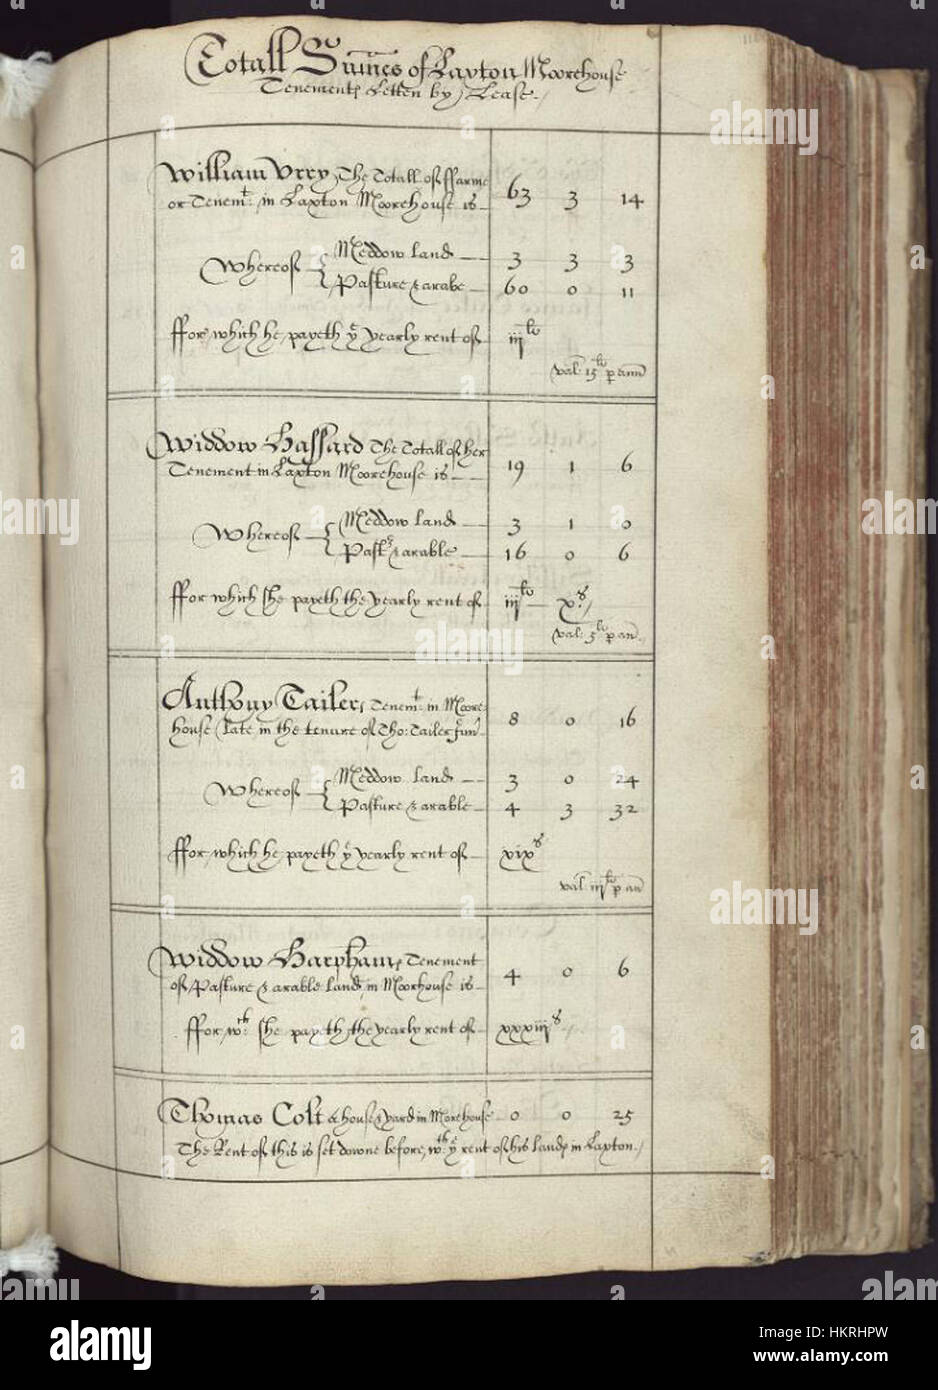 Totall Sūmes of Laxton Moorehouse
Tenements Letten by Lease./
William Urry, The Totall of ffarme 63 3 14
or Tenemt: in Laxton Moorehouse is
Whereof { Meddow land 3 3 3
Pasture & arable 60 0 11
ffor which he payeth ye yearly rent of iijlb
val: 15lb p ann
Widdow Hassard The Totall of her 19 1 6
Tenement in Laxton Moorehouse is
Whereof { Meddow land 3 1 0
Past: & arable 16 0 6
ffor which she payeth the yearly rent of iijlb xs./
val: 5lb p an.
Anthony Tailers Tenemt: in Moore- 8 0 16
house late in the tenure of Tho: Tailer Junr
Whereof { Meddow land 3 0 24
Pasture & arable 4 3 32
ffor which he payeth ye yearly rent of xixs
val: iijlb p an
Widdow Harphams Tenement 4 0 6
of Pasture & arable land in Moorhouse is
ffor wch: she payeth the yearly rent of xxxiijs
Thomas Colt a house & yard in Morehouse 0 0 25
The Rent of this is set downe before, wth: ye rent of his lands in Laxton./
alamy
a
alamy stock photo
HKRHPW
www.alamy.com